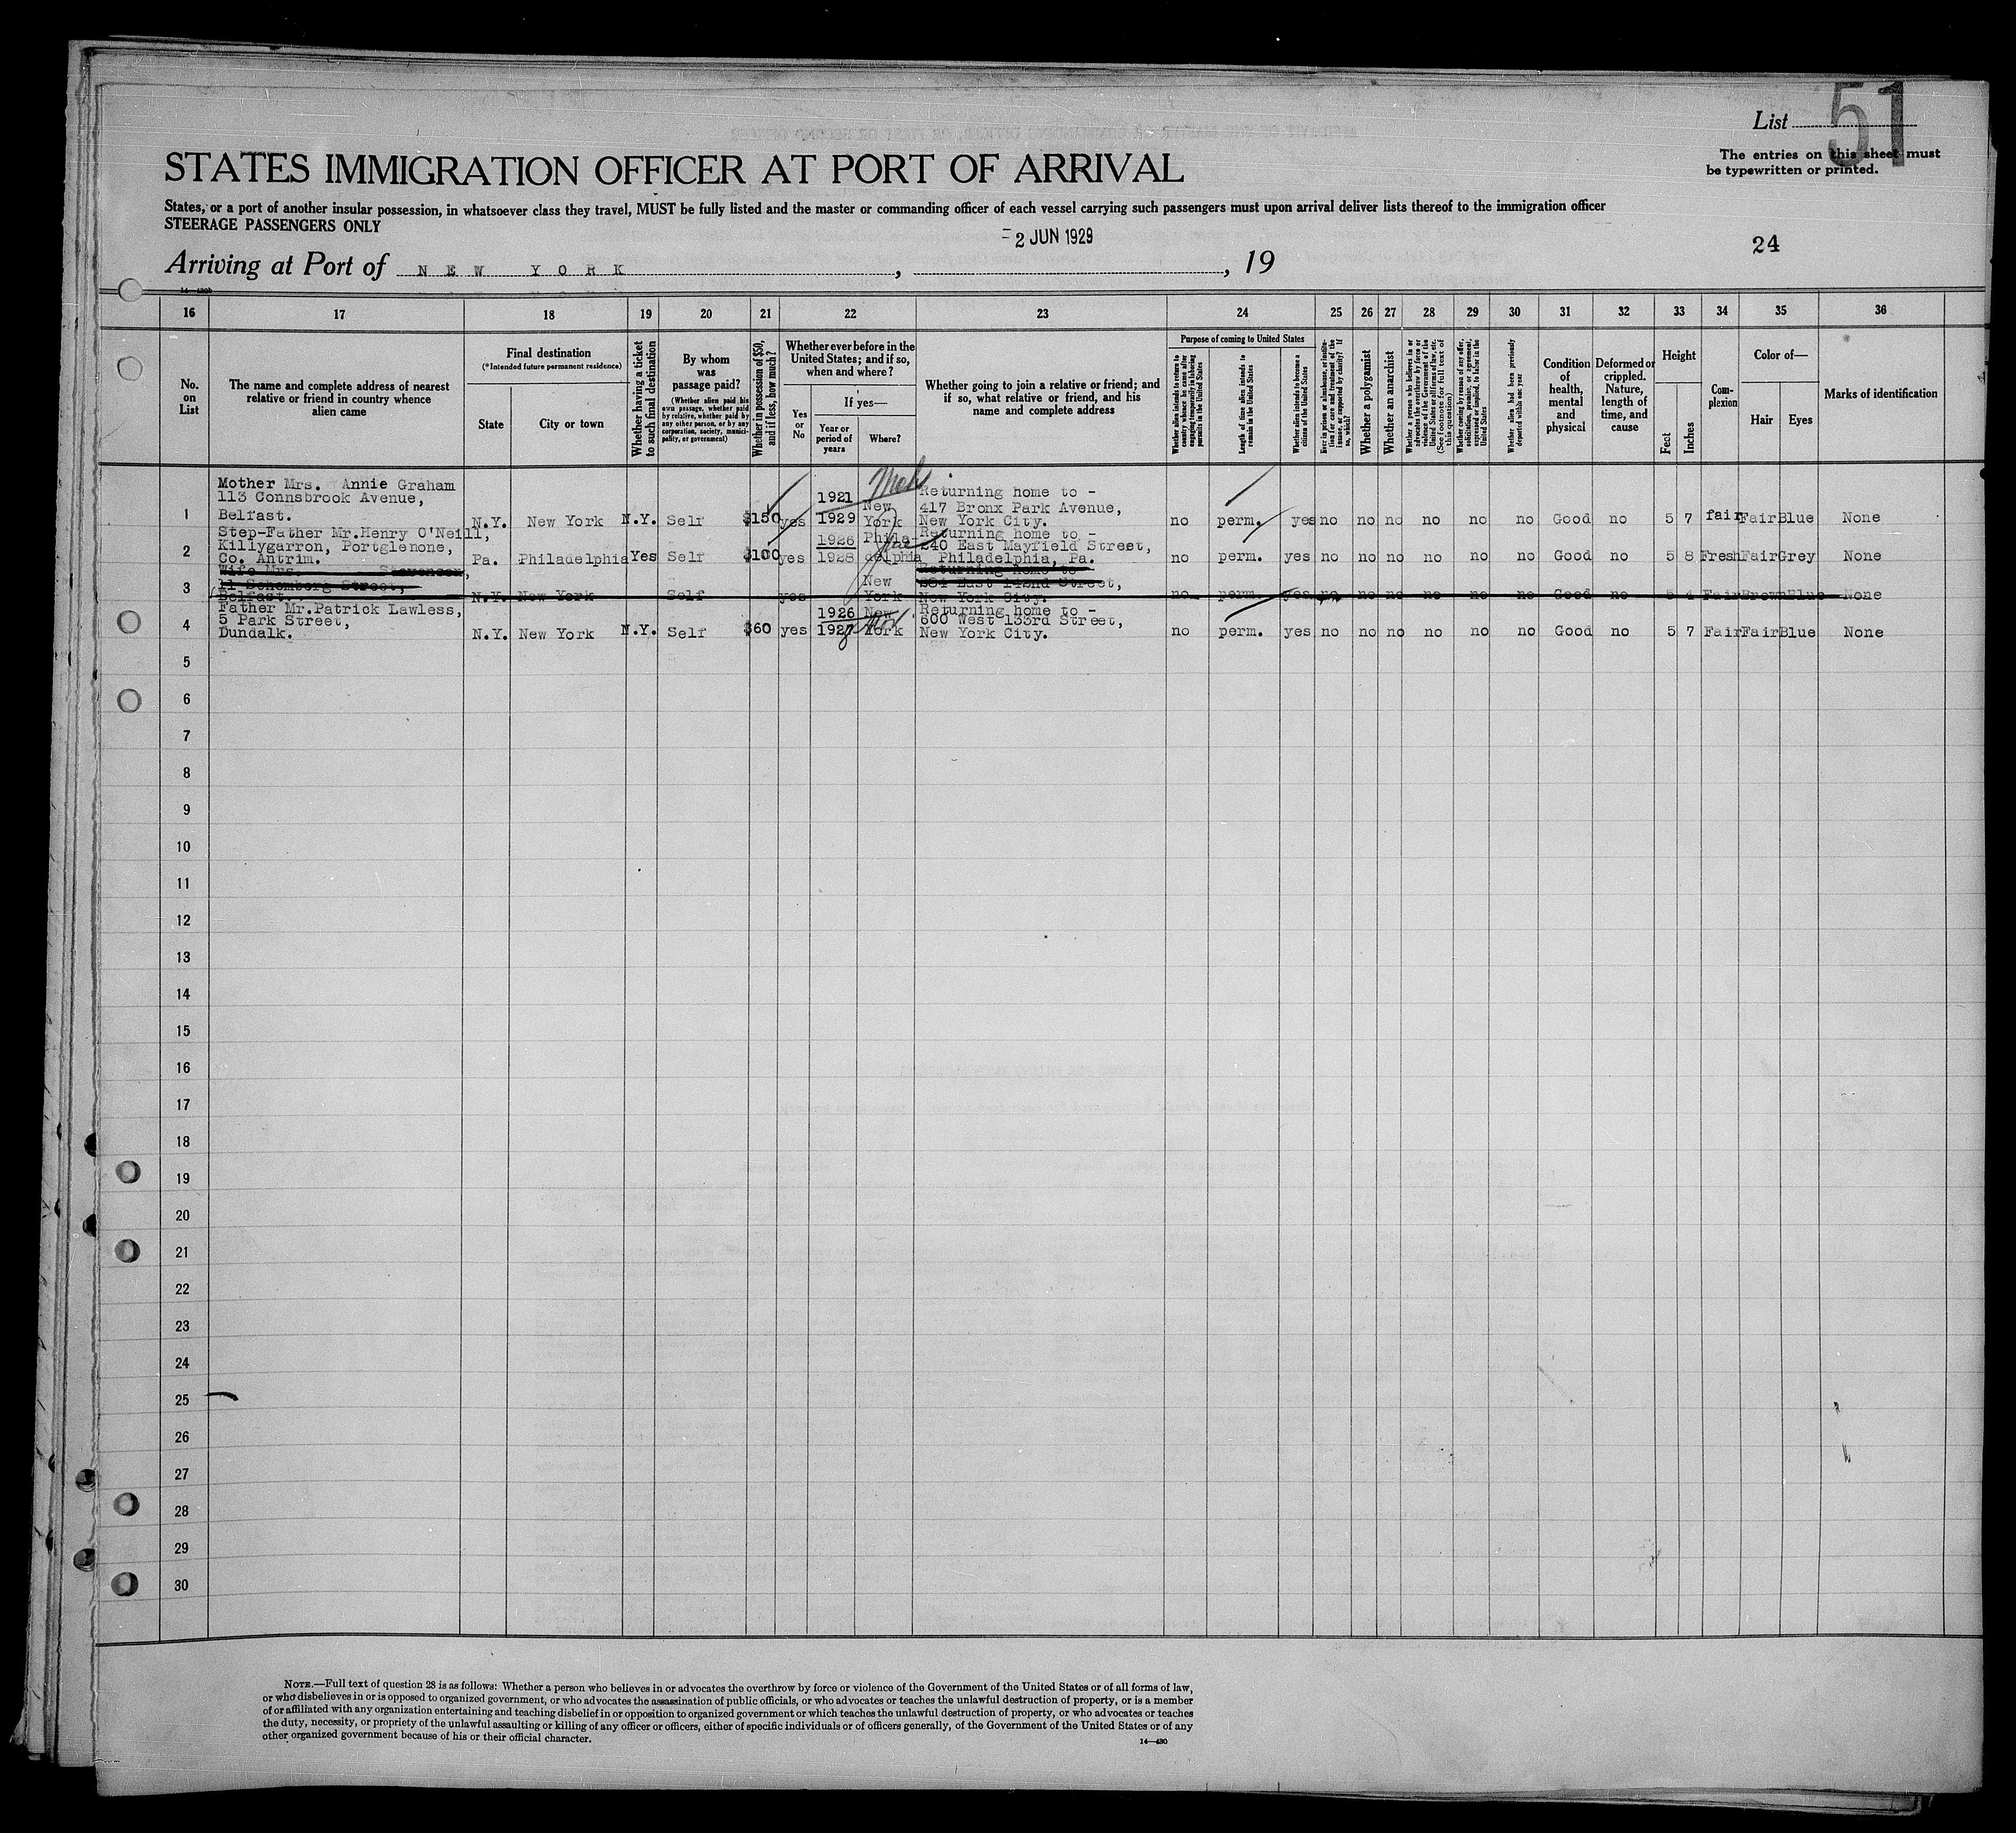 51
List
The entries on this sheet must
be typewritten or printed.
STATES IMMIGRATION OFFICER AT PORT OF ARRIVAL
States, or a port of another insular possession, in whatsoever class they travel, MUST be fully listed and the master or commanding officer of each vessel carrying such passengers must upon arrival deliver lists thereof to the immigration officer
STEERAGE PASSENGERS ONLY
-2 JUN 1929
24
Arriving at Port of NEW YORK, , 19
16 17 18 19 20 21 22 23 24 25 26 27 28 29 30 31 32 33 34 35 36
No. on List
The name and complete address of nearest
relative or friend in country whence
alien came
Final destination
(*Intended future permanent residence)
State
City or town
Whether having a ticket
to such final destination
By whom
was
passage paid?
(Whether alien paid his
own passage, whether paid
by relative, whether paid by
any other person, or by any
corporation, society, munici-
pality, or government)
Whether in possession of $50,
and if less, how much?
Whether ever before in the
United States; and if so,
when and where?
Yes
or
No
If yes—
Year or
period of
years
Where?
Whether going to join a relative or friend; and
if so, what relative or friend, and his
name and complete address
Purpose of coming to United States
Whether alien intends to return to
country whence he came after
engaging temporarily in laboring
pursuits in the United States
Length of time alien intends to
remain in the United States
Whether alien intends to become a
citizen of the United States
Ever in prison or almshouse, or institu-
tion for care and treatment of the
insane, or supported by charity? If
so, which?
Whether a polygamist
Whether an anarchist
Whether a person who believes in or
advocates the overthrow by force or
violence of the Government of the
United States or all forms of law, etc.
(See footnote for full text of
this question)
Whether coming by reason of any offer,
solicitation, promise, or agreement,
expressed or implied, to labor in the
United States
Whether alien had been previously
deported within one year
Condition
of
health,
mental
and
physical
Deformed or
crippled.
Nature,
length of
time, and
cause
Height
Feet
Inches
Com-
plexion
Color of—
Hair
Eyes
Marks of identification
Mother Mrs. Annie Graham
113 Connsbrook Avenue,
Belfast.
1 N.Y. New York N.Y. Self $150 yes 1921 1929 New York
Returning home to -
417 Bronx Park Avenue,
New York City.
no perm. yes no no no no no no Good no 5 7 fair Fair Blue None
Step-Father Mr.Henry O'Neill,
Killygarron, Portglenone,
Co. Antrim.
2 Pa. Philadelphia Yes Self $100 yes 1926 1928 Phila-delphia
Returning home to -
240 East Mayfield Street,
Philadelphia, Pa.
no perm. yes no no no no no no Good no 5 8 Fresh Fair Grey None
Wife Mrs. Stevenson,
11 Schomberg Street,
Belfast.
3 N.Y. New York Self yes New York
Returning home to
384 East 142nd Street,
New York City.
no perm. yes no no no no no no Good no 5 4 Fair Brown Blue None
Father Mr.Patrick Lawless,
5 Park Street,
Dundalk.
4 N.Y. New York N.Y. Self $60 yes 1926 1927 8 New York
Returning home to -
600 West 133rd Street,
New York City.
no perm. yes no no no no no no Good no 5 7 Fair Fair Blue None
5
6
7
8
9
10
11
12
13
14
15
16
17
18
19
20
21
22
23
24
25
26
27
28
29
30
NOTE.—Full text of question 28 is as follows: Whether a person who believes in or advocates the overthrow by force or violence of the Government of the United States or of all forms of law,
or who disbelieves in or is opposed to organized government, or who advocates the assassination of public officials, or who advocates or teaches the unlawful destruction of property, or is a member
of or affiliated with any organization entertaining and teaching disbelief in or opposition to organized government or which teaches the unlawful destruction of property, or who advocates or teaches
the duty, necessity, or propriety of the unlawful assaulting or killing of any officer or officers, either of specific individuals or of officers generally, of the Government of the United States or of any
other organized government because of his or their official character.
14—430